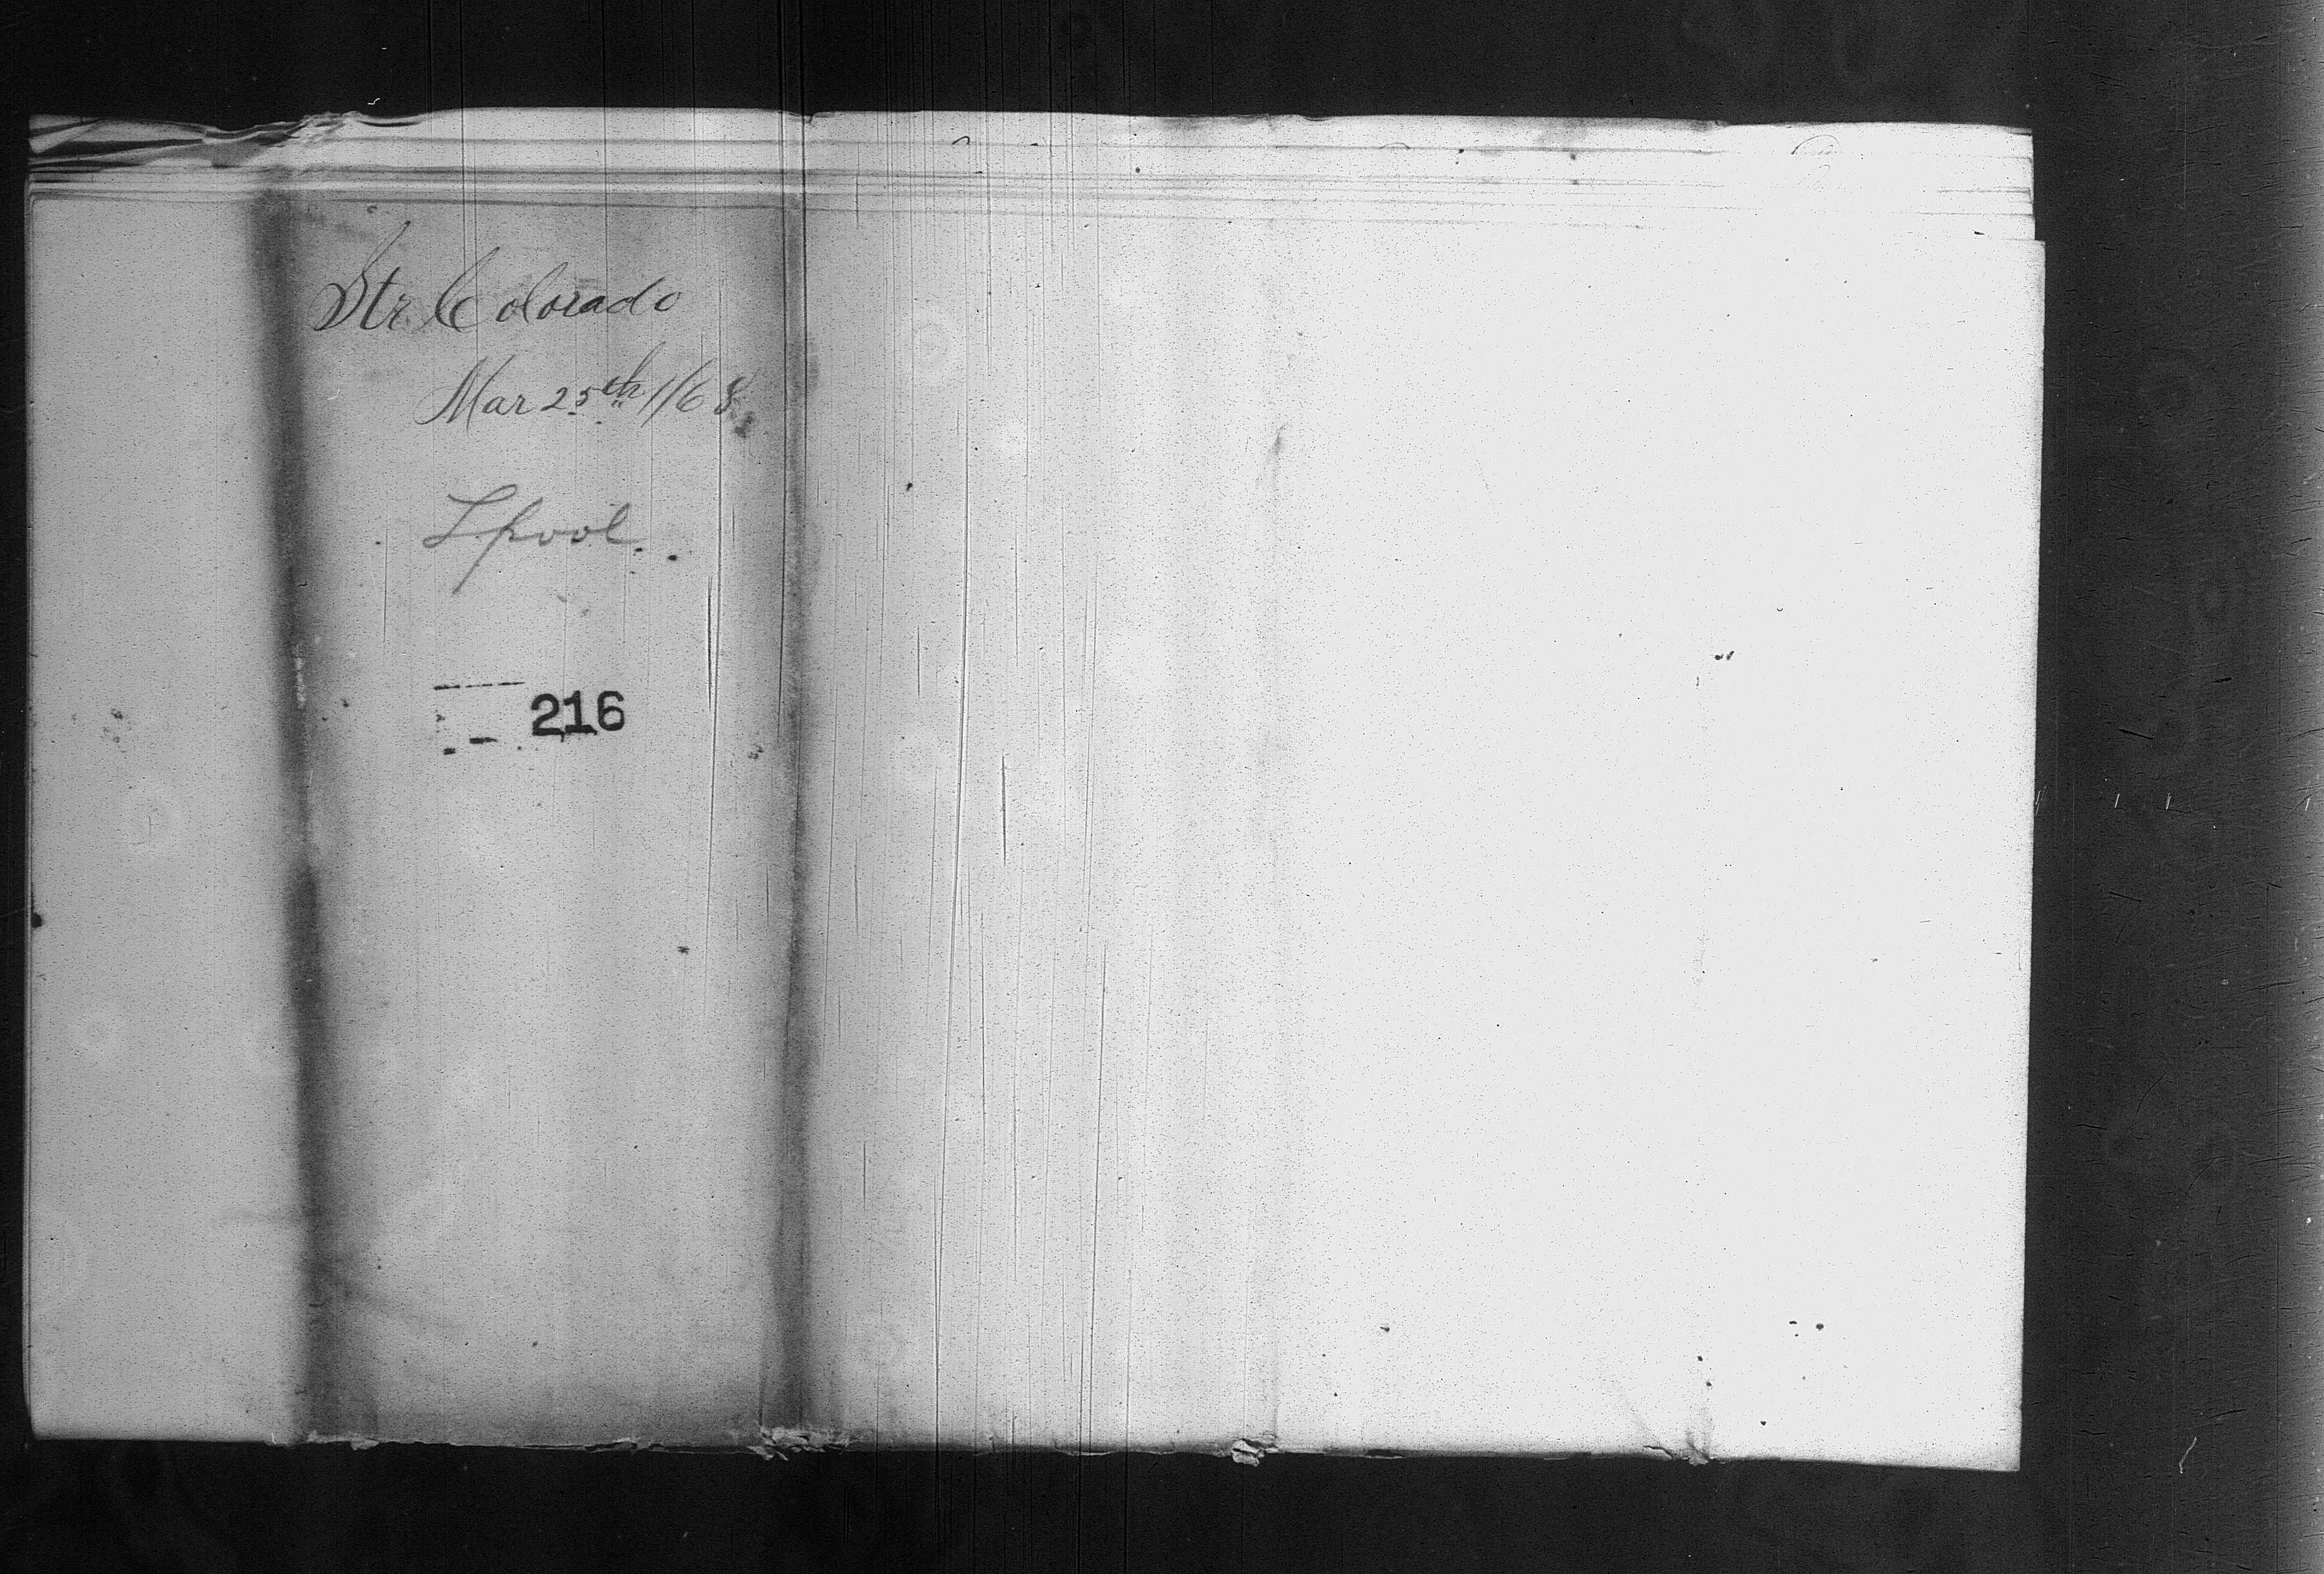 Str. Colorado
Mar 25th 1/68
Lpool.
216